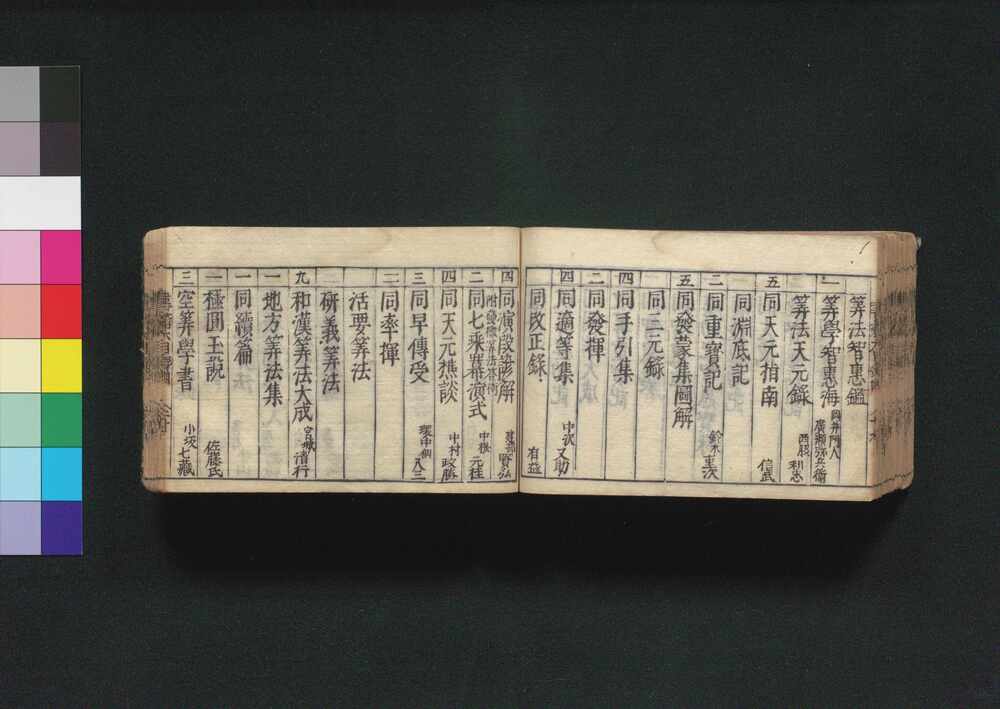 算法智惠鑑
一 算學智惠海 岡井丹入 廣瀬弥兵衛
算法天元錄 西脇利忠
五 同天元指南 信武
同淵底記
二 同重寶記 鈴木重次
五 同發蒙集圖解
同三元錄
四 同手引集
二 同發揮
四 同適等集 中沢又助
同改正錄 有益
四 同演段諺解 建部賢弘
二 同七乘冪演式 中根元桂
四 同天元樵談 中村政勝
三 同早傳受 環中仙八三
二 同率揮
活要算法
二 研義算法
九 和漢算法大成 宮城清行
一 地方算法集
一 同續篇
一 極圓玉説 佐藤氏
三 空算學書 小坂七藏